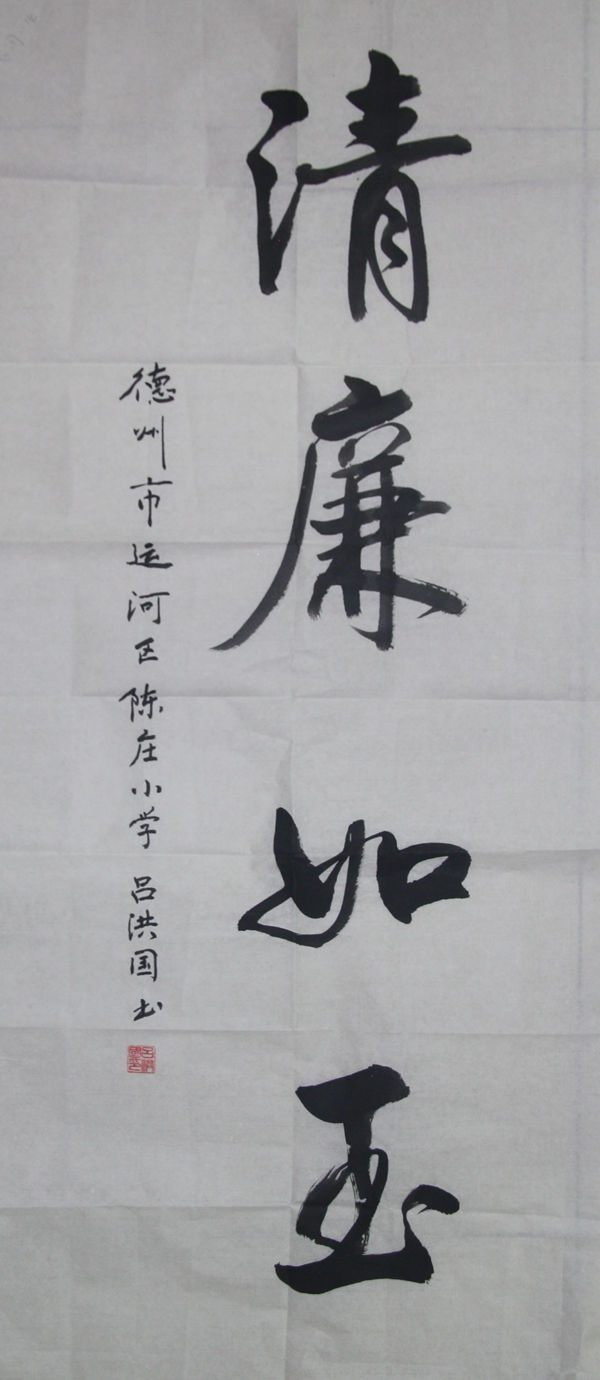 清廉如玉
德州市运河区陈庄小学 吕洪国书